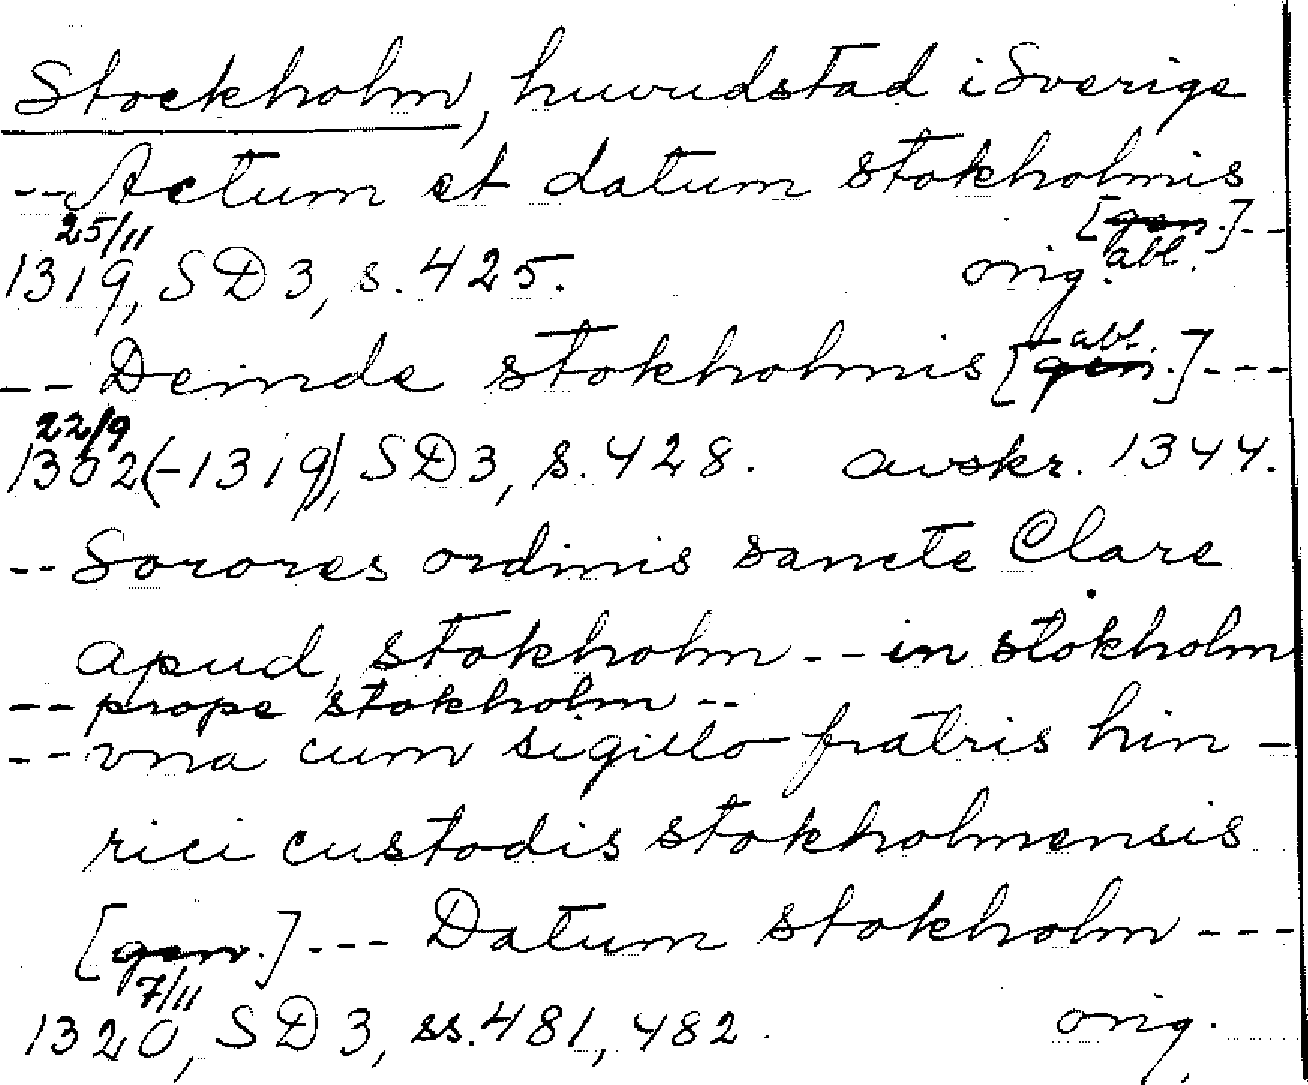 Stockholm, huvudstad i Sverige
-- Actum et datum stokholmis
[gen.] abl. ---
25/11
1319, SD 3, s. 425. orig.
-- Deinde stokholmis [gen.] abl. ---
22/9
1302(-1319), SD 3, s. 428. avskr. 1344.
-- Sorores ordinis sancte Clare
apud stokholm -- in stokholm
-- prope stokholm --
-- vna cum sigillo fratris hin-
rici custodis stokholmensis
[gen.] --- Datum stokholm ---
7/11
1320, SD 3, ss. 481, 482. orig.